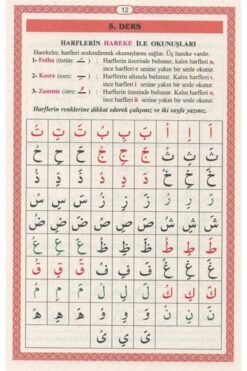 12
5. DERS
HARFLERİN HAREKE İLE OKUNUŞLARI
Harekeler, harfleri seslendirerek okunuşlarını sağlar. Üç hareke vardır.
1- Fetha (üstün: ـَ ) : Harflerin üzerinde bulunur, kalın harfleri a,
ince harfleri e sesine yakın bir sesle okutur.
2- Kesre (esre: ـِ ) : Harflerin altında bulunur. Kalın harfleri ı,
ince harfleri i sesine yakın bir sesle okutur.
3- Zamme (ötre: ـُ ) : Harflerin üzerinde bulunur. Kalın harfleri u,
ince harfleri ü sesine yakın bir sesle okutur.
Harflerin renklerine dikkat ederek çalışınız ve iki sayfa yazınız.
اَ اِ اُ بَ بِ بُ تَ تِ تُ
ثَ ثِ ثُ جَ جِ جُ حَ حِ حُ
خَ خِ خُ دَ دِ دُ ذَ ذِ ذُ
رَ رِ رُ زَ زِ زُ سَ سِ سُ
شَ شِ شُ صَ صِ صُ ضَ ضِ ضُ
طَ طِ طُ ظَ ظِ ظُ عَ عِ عُ
غَ غِ غُ فَ فِ فُ قَ قِ قُ
كَ كِ كُ لَ لِ لُ مَ مِ مُ
نَ نِ نُ وَ وِ وُ هَ هِ هُ
يَ يِ يُ